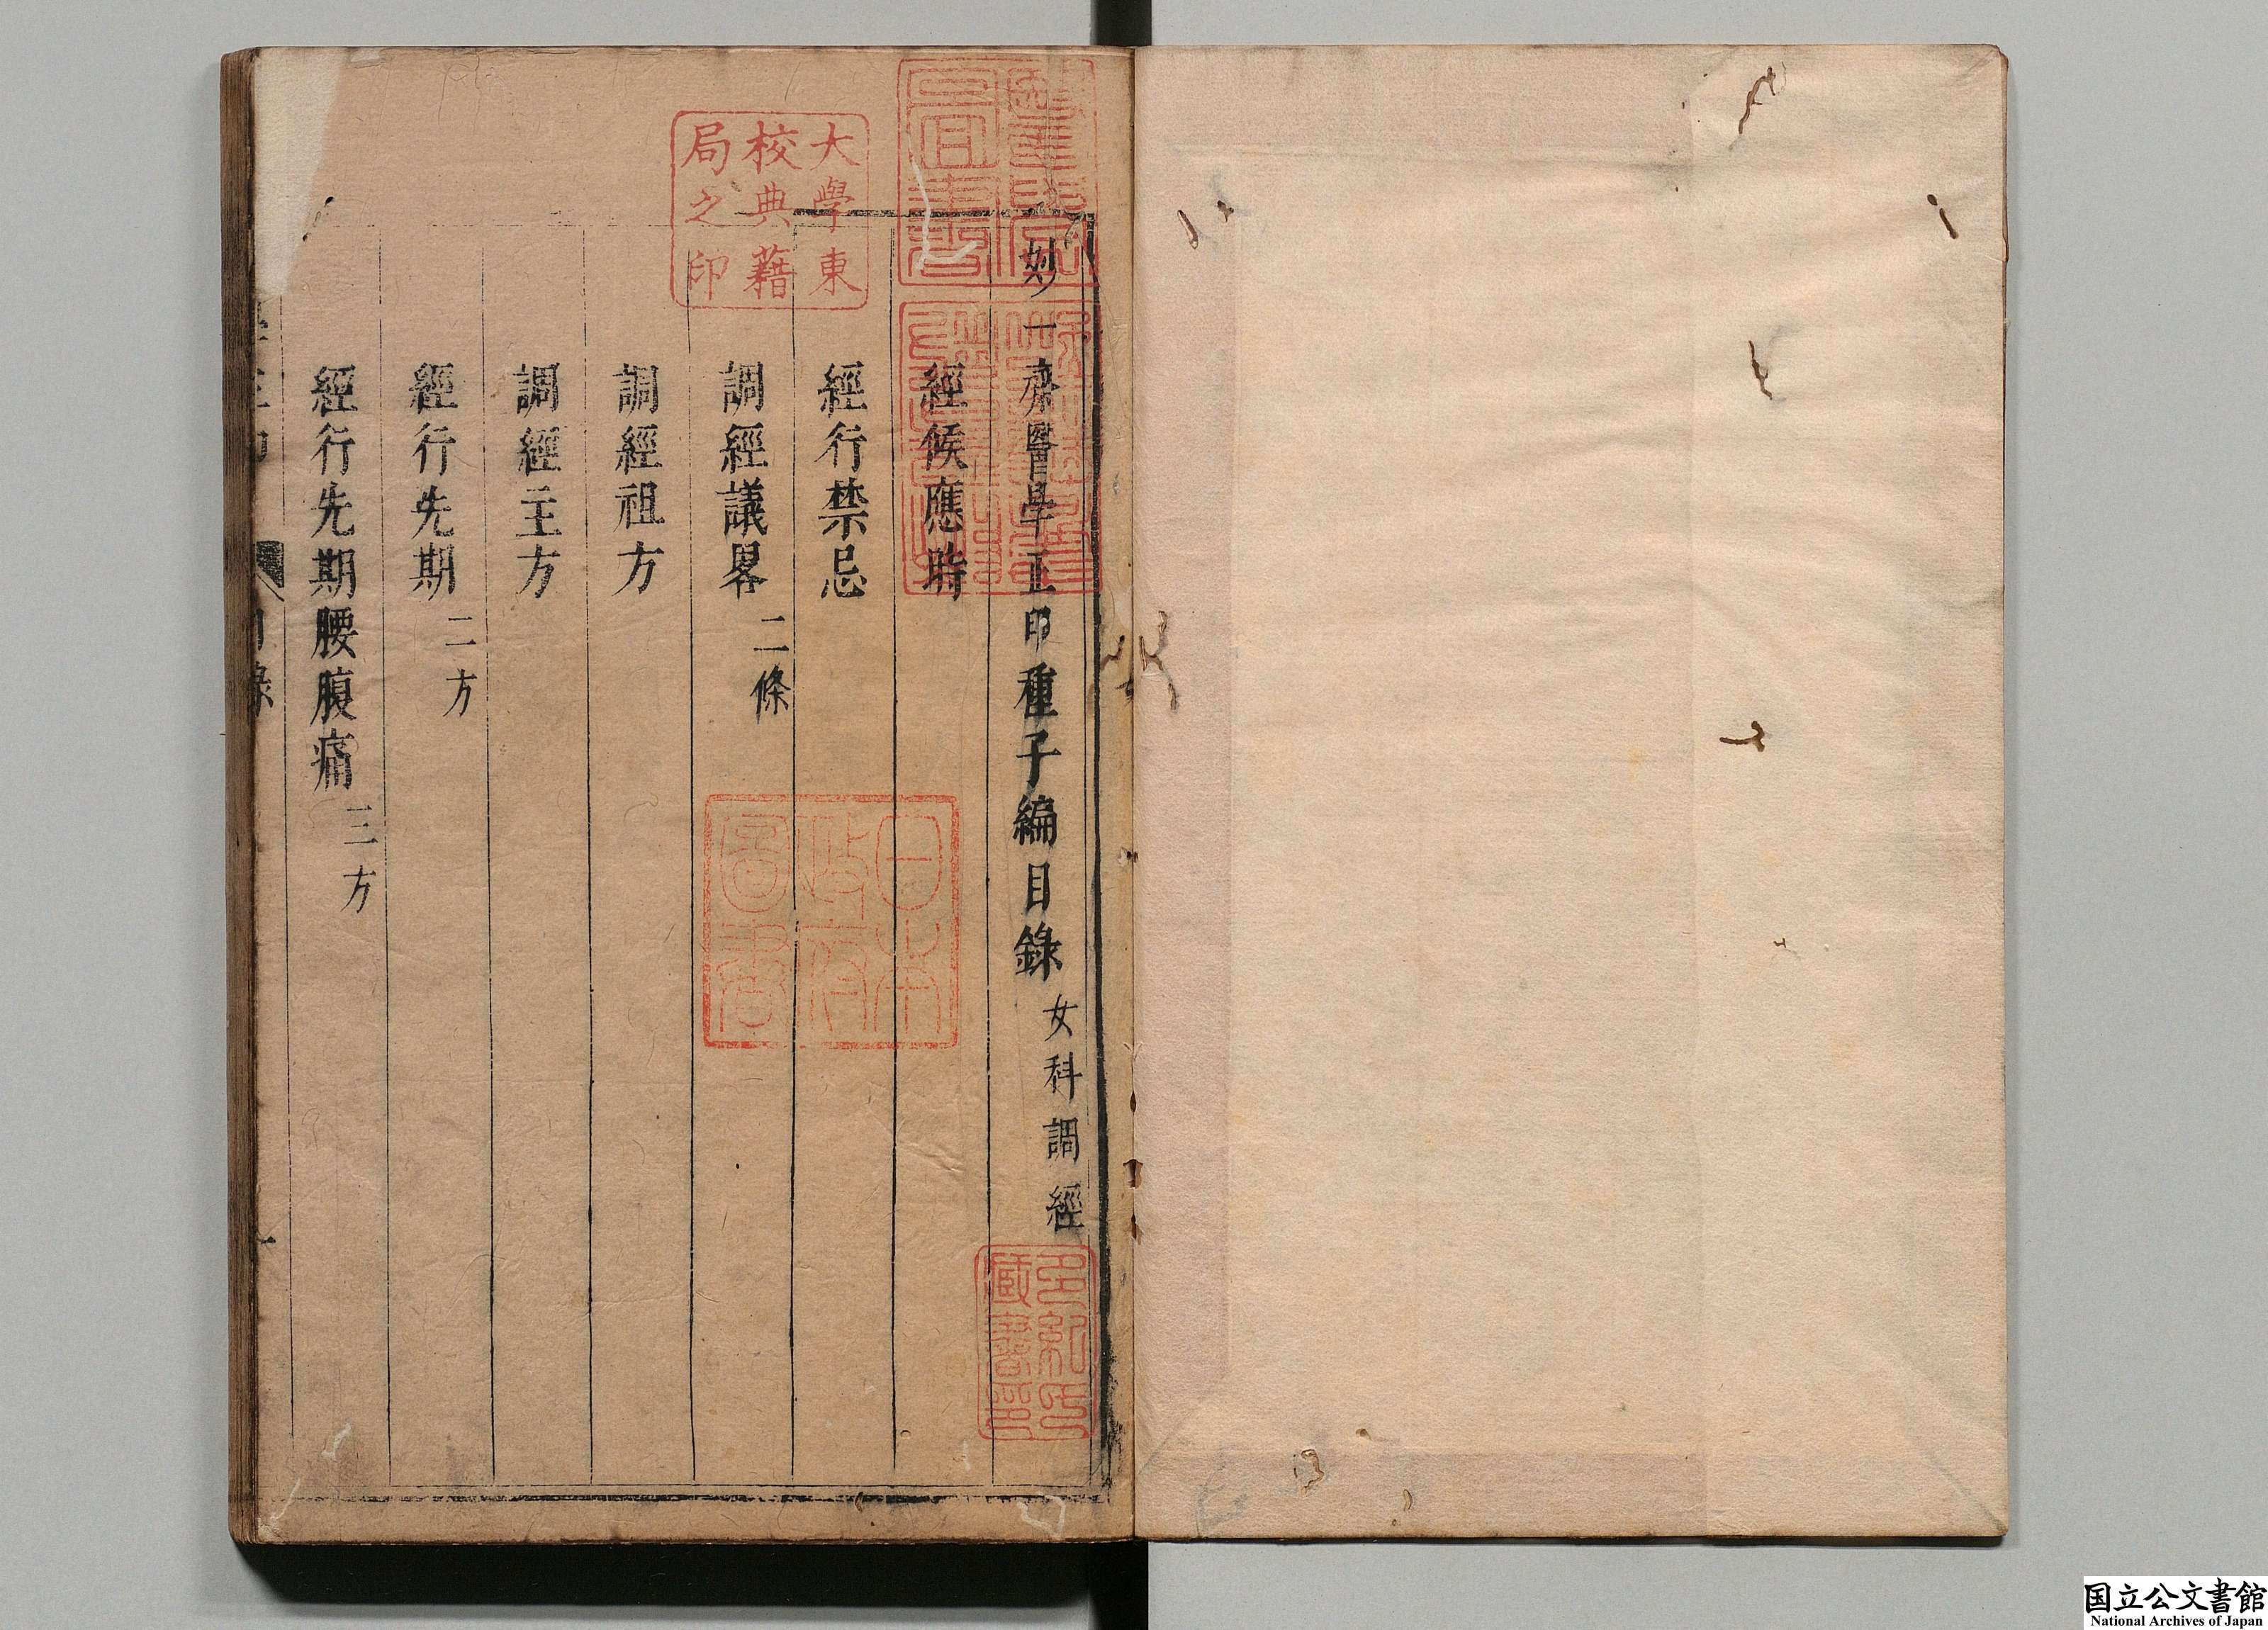 妙一齋醫學正印種子編目錄 女科調經
經候應時
經行禁忌
調經議畧 二條
調經祖方
調經主方
經行先期 二方
經行先期腰腹痛 三方
目錄
一
大學東
校典藉
局之印
日本
政府
圖書
多紀氏
藏書印
国立公文書館
National Archives of Japan